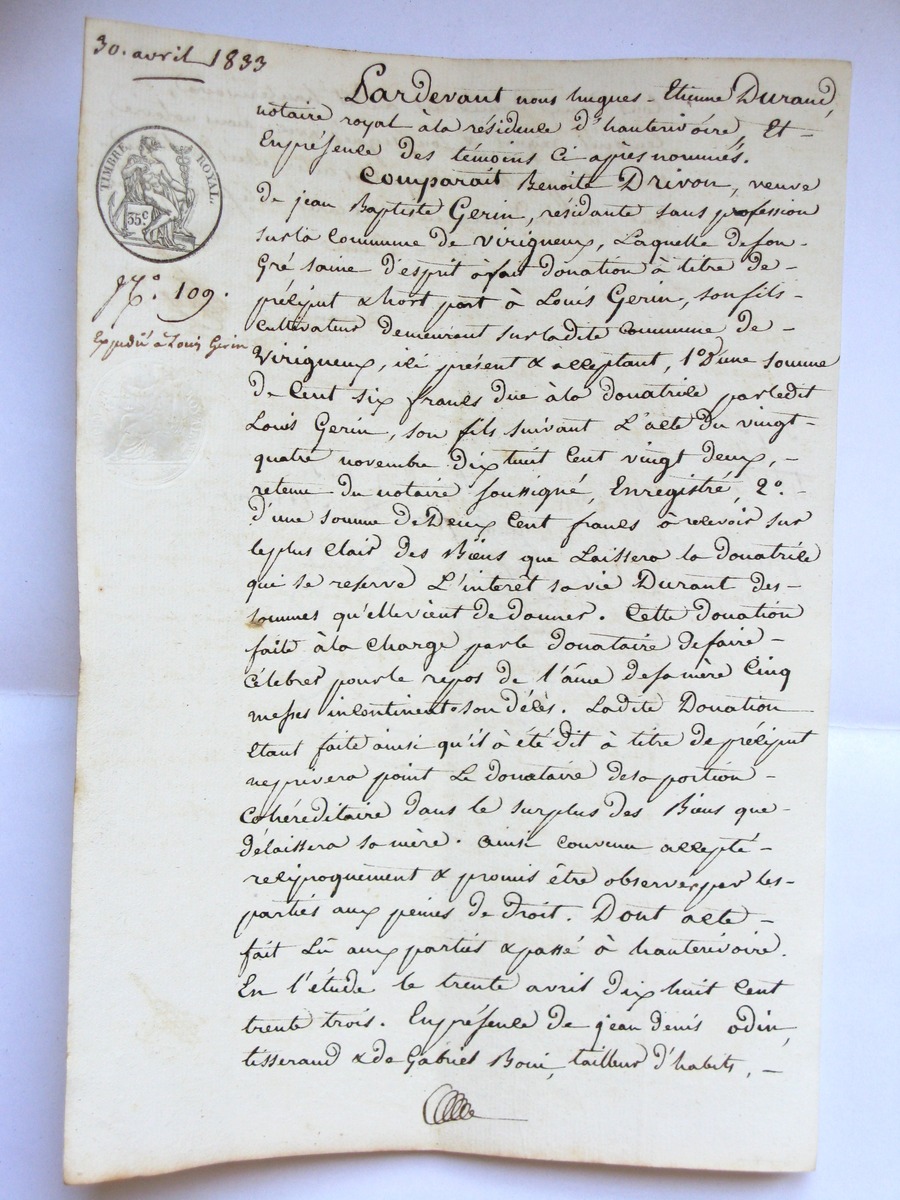 30. avril 1833
TIMBRE ROYAL.
35c
N.o 109.
Expédié à Louis Gerin
Pardevant nous hugues-Etienne Durand,
notaire royal à la résidence d'hauterivoire, Et-
En présence des témoins ci après nommés.
Comparait Benoite Drivon, veuve
de jean Baptiste Gerin, résidante sans profession
sur la commune de Virigneux, Laquelle de son-
Gré saine d'esprit à fait donation à titre de-
préciput & hort part à Louis Gerin, son fils-
cultivateur demeurant sur ladite commune de-
Virigneux, ici présent & acceptant, 1o D'une somme
de Cent six francs due à la donatrice par ledit
Louis Gerin, son fils suivant L'acte du vingt-
quatre novembre dix huit Cent vingt deux,-
retenu du notaire soussigné, Enregistré, 2o.-
d'une somme de Deux Cent francs à recevoir sur
le plus clair des Biens que Laissera la donatrice
qui se reserve L'interêt sa vie Durant des-
sommes qu'elle vient de donner. Cette donation
faite à la charge par le donataire de faire-
célébrer pour le repos de l'âme de sa mère Cinq
messes incontinent son décès. Ladite Donation
Etant faite ainsi qu'il à été dit à titre de préciput
ne privera point Le donataire de sa portion-
Cohéréditaire dans le surplus des Biens que-
délaissera sa mère. Ainsi convenu accepté-
réciproquement & promis être observer par les-
parties aux peines de droit. Dont acte-
fait Lû aux parties & passé à hauterivoire.
En l'étude le trente avril dix huit Cent
trente trois. En présence de jean denis odin,
tisserand & de Gabriel, tailleur d'habits,-